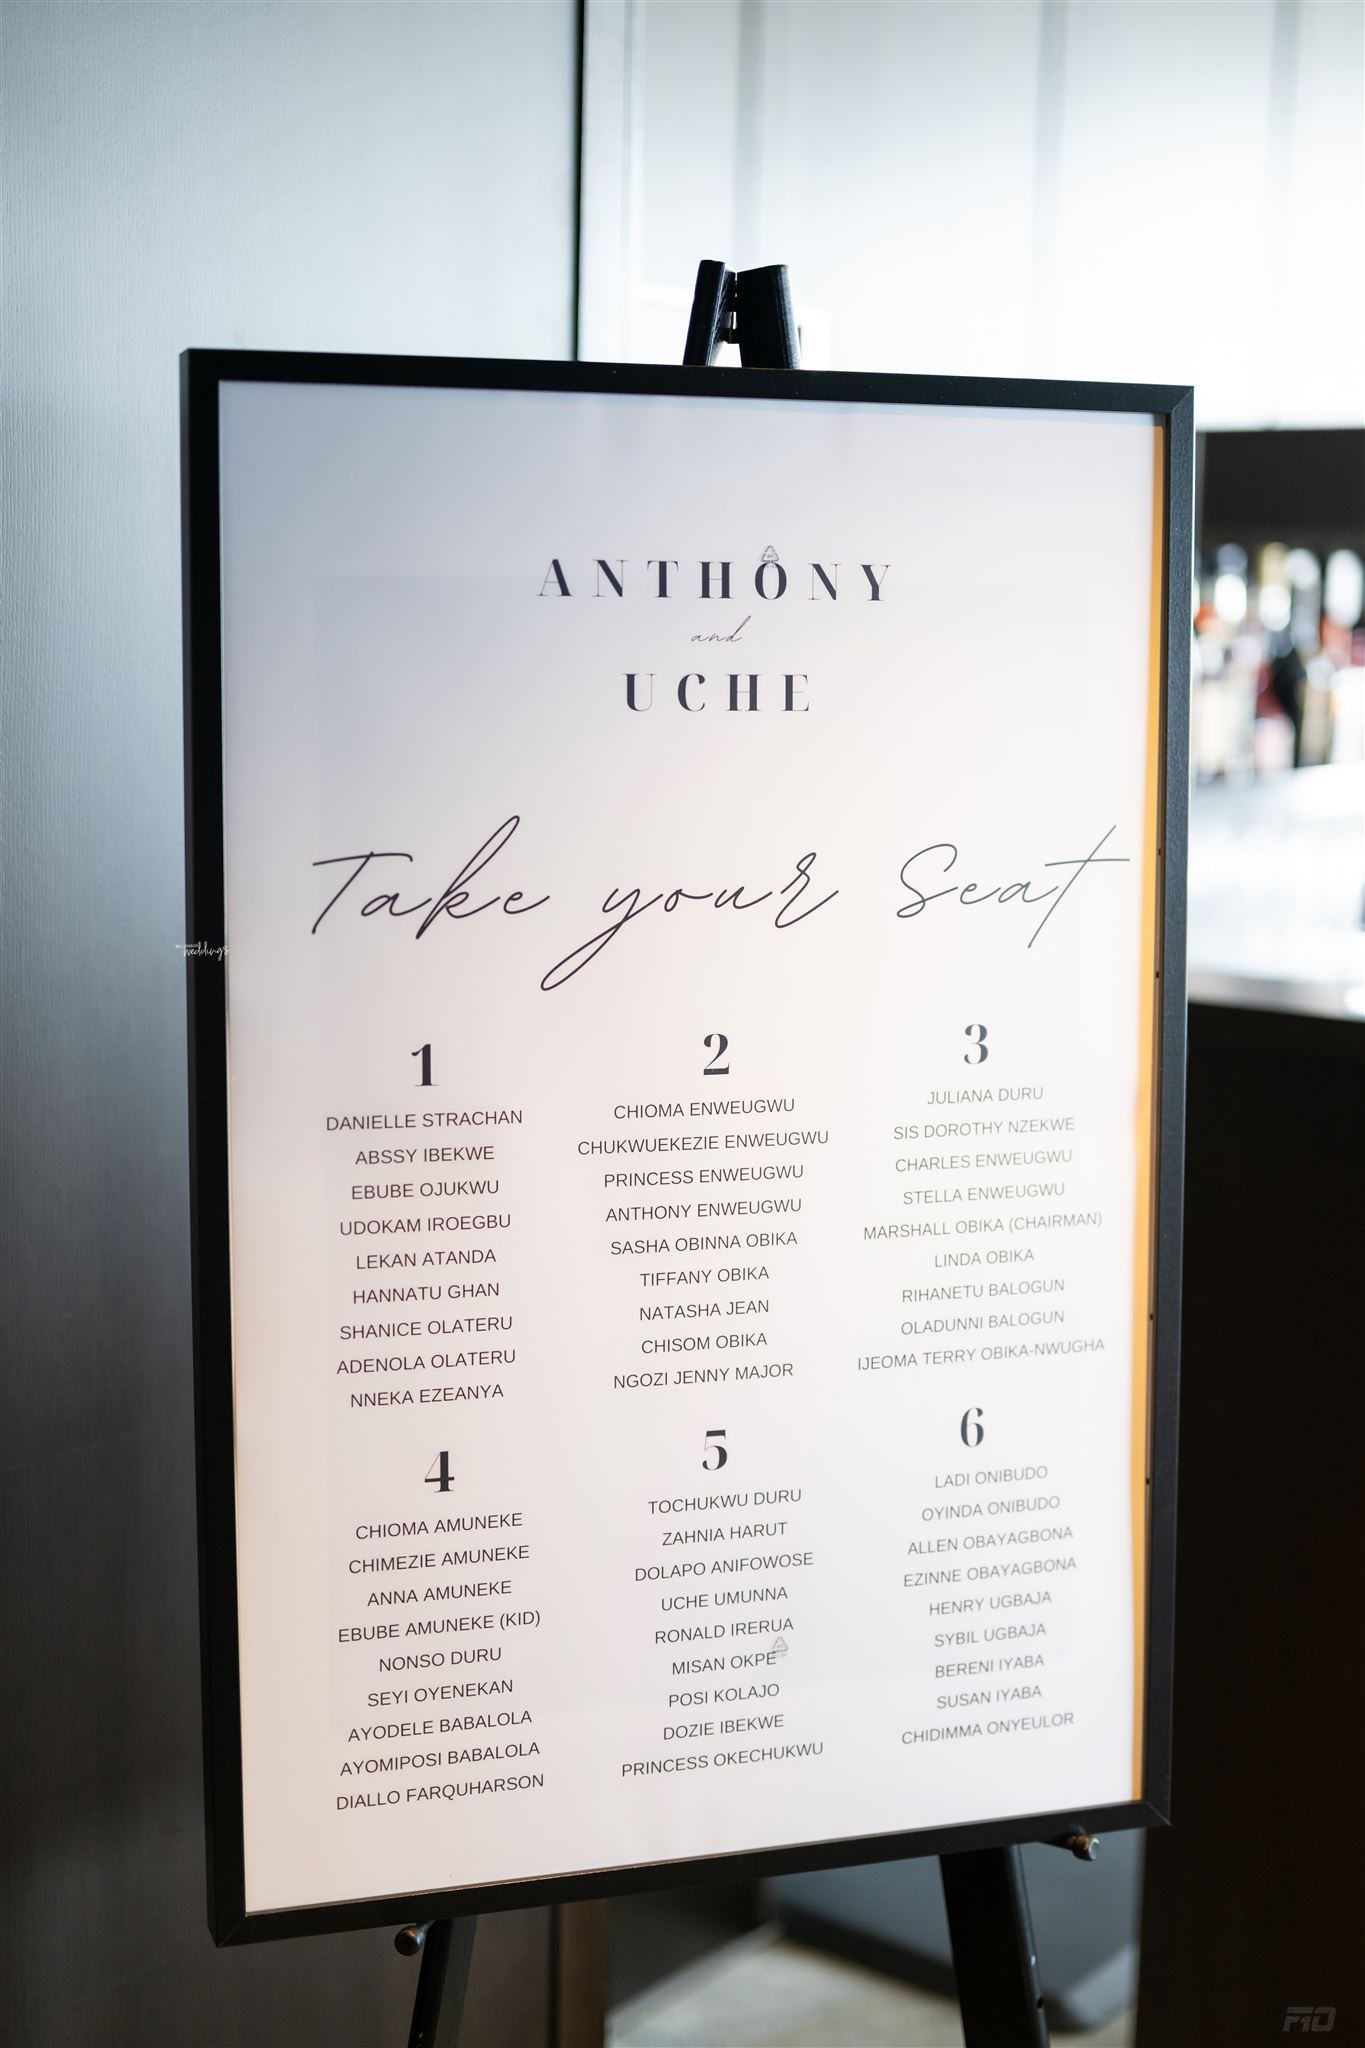 ANTHONY
and
UCHE
Take your Seat
1
DANIELLE STRACHAN
ABSSY IBEKWE
EBUBE OJUKWU
UDOKAM IROEGBU
LEKAN ATANDA
HANNATU GHAN
SHANICE OLATERU
ADENOLA OLATERU
NNEKA EZEANYA
2
CHIOMA ENWEUGWU
CHUKWUEKEZIE ENWEUGWU
PRINCESS ENWEUGWU
ANTHONY ENWEUGWU
SASHA OBINNA OBIKA
TIFFANY OBIKA
NATASHA JEAN
CHISOM OBIKA
NGOZI JENNY MAJOR
3
JULIANA DURU
SIS DOROTHY NZEKWE
CHARLES ENWEUGWU
STELLA ENWEUGWU
MARSHALL OBIKA (CHAIRMAN)
LINDA OBIKA
RIHANETU BALOGUN
OLADUNNI BALOGUN
IJEOMA TERRY OBIKA-NWUGHA
4
CHIOMA AMUNEKE
CHIMEZIE AMUNEKE
ANNA AMUNEKE
EBUBE AMUNEKE (KID)
NONSO DURU
SEYI OYENEKAN
AYODELE BABALOLA
AYOMIPOSI BABALOLA
DIALLO FARQUHARSON
5
TOCHUKWU DURU
ZAHNIA HARUT
DOLAPO ANIFOWOSE
UCHE UMUNNA
RONALD IRERUA
MISAN OKPE
POSI KOLAJO
DOZIE IBEKWE
PRINCESS OKECHUKWU
6
LADI ONIBUDO
OYINDA ONIBUDO
ALLEN OBAYAGBONA
EZINNE OBAYAGBONA
HENRY UGBAJA
SYBIL UGBAJA
BERENI IYABA
SUSAN IYABA
CHIDIMMA ONYEULOR
weddings
F10